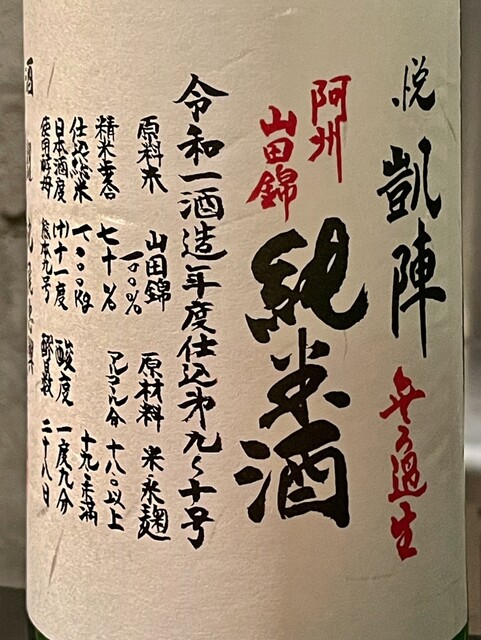 悦 凱陣 無ろ過生
阿州
山田錦
純米酒
令和一酒造年度仕込第九〜十号
原料米 山田錦
一〇〇%
原材料 米 米麹
精米歩合 七十%
アルコール分 十八〇以上
十九〇未満
仕込総米 一〇〇〇kg
日本酒度 (+)十一度
酸度 一度九分
使用酵母 熊本九号
醪日数 二十八日
酒